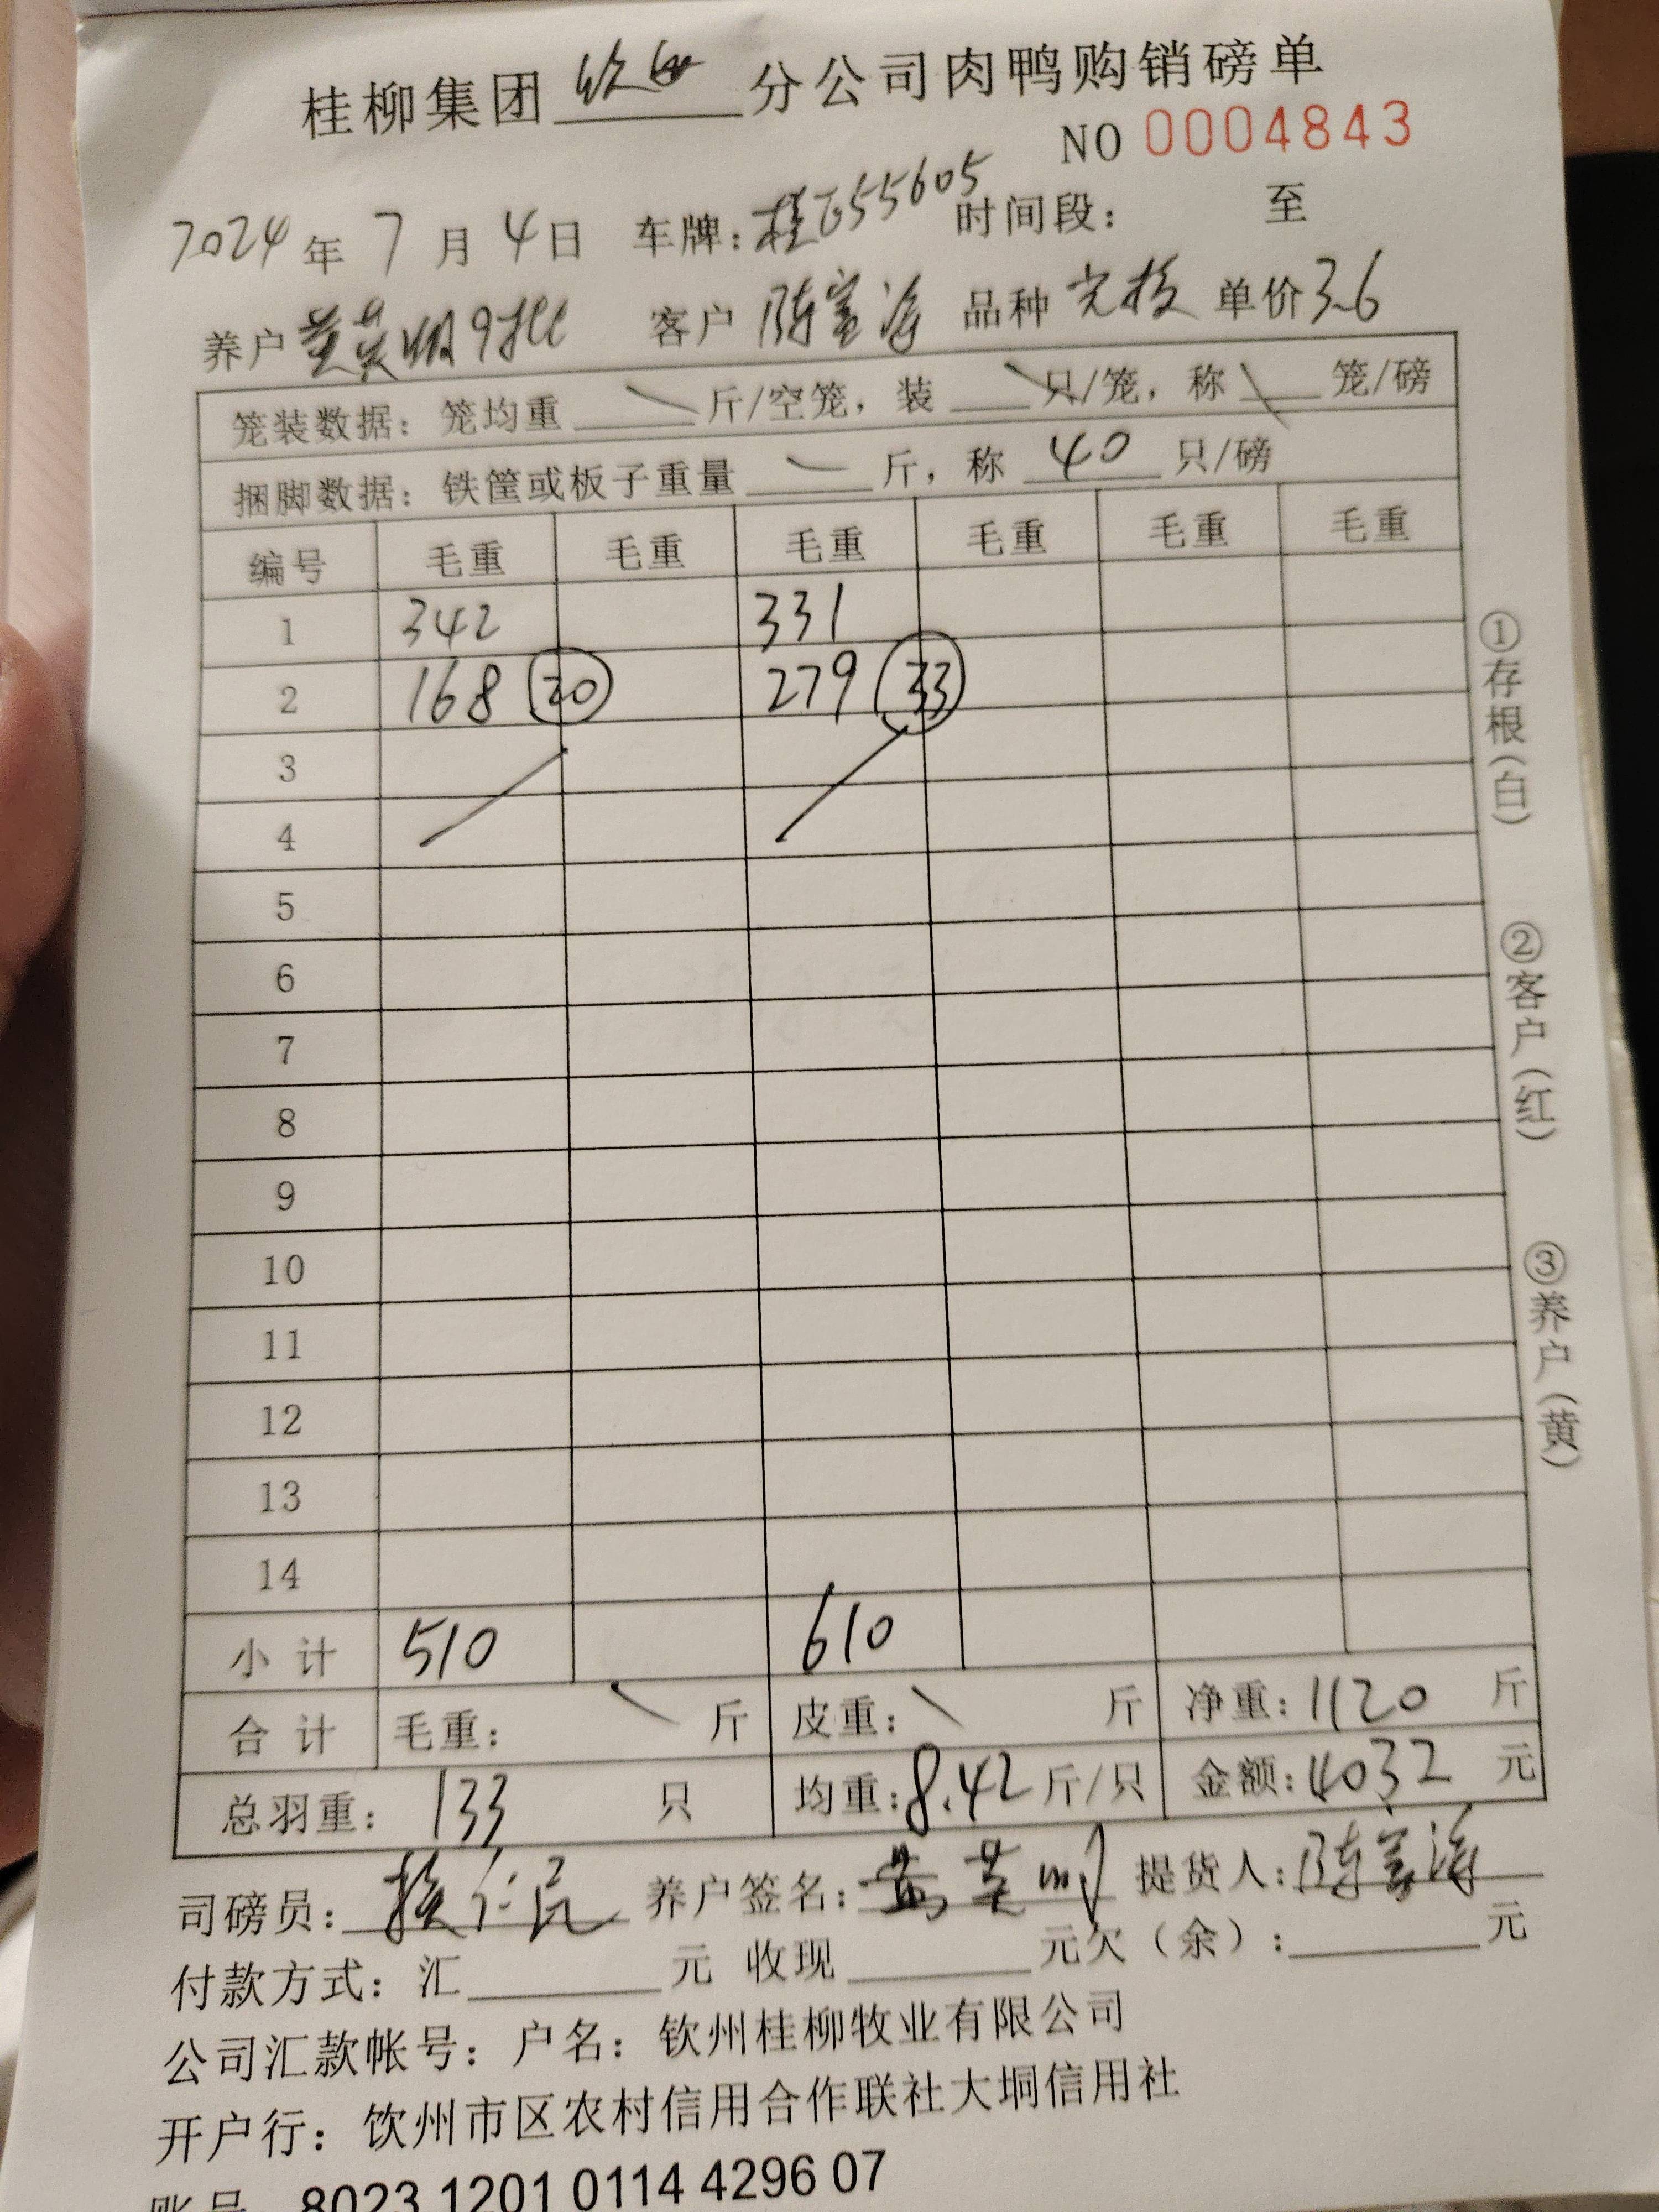 桂柳集团 钦州 分公司肉鸭购销磅单
NO 0004843
2024年 7月 4日 车牌:桂E55605 时间段: 至
养户 黄英明9批 客户 陈富海 品种 单价3.6
笼装数据:笼均重 斤/空笼,装 只/笼,称 笼/磅
捆脚数据:铁筐或板子重量 斤,称 40 只/磅
编号 毛重 毛重 毛重 毛重 毛重 毛重
1 342 331
2 168 20 279 33
3
4
5
6
7
8
9
10
11
12
13
14
小计 510 610
合计 毛重: 斤 皮重: 斤 净重:1120 斤
总羽重: 133 只 均重:8.42斤/只 金额:4032 元
司磅员: 养户签名:黄英明 提货人:陈富海
付款方式:汇 元 收现 元欠(余): 元
公司汇款帐号:户名:钦州桂柳牧业有限公司
开户行:钦州市区农村信用合作联社大垌信用社
账号 8023 1201 0114 4296 07
①存根(白) ②客户(红) ③养户(黄)